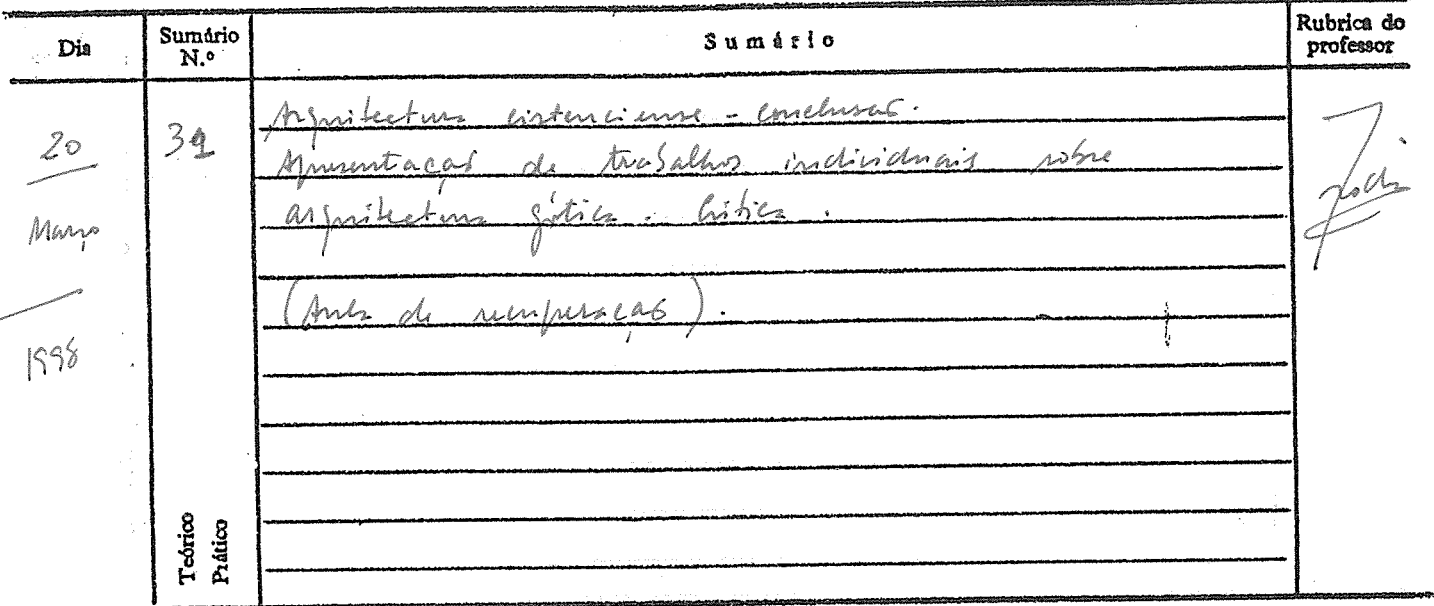 Dia
Sumário
N.º
Sumário
Rubrica do
professor
20
Março
1998
Arquitectura cisterciense - conclusão.
Apresentação de trabalhos individuais sobre
arquitectura gótica. Crítica.
(Aula de recuperação).
Teórico
Prático